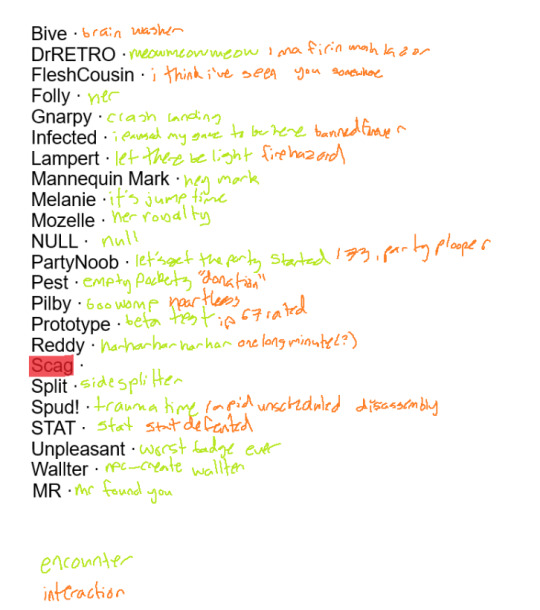 Bive · brain washer
DrRETRO · meowmeowmeow ima firin mah lazor
FleshCousin · i think i've seen you somewhere
Folly · her
Gnarpy · crash landing
Infected · i paused my game to be here banned forever
Lampert · let there be light firehazard
Mannequin Mark · hey mark
Melanie · it's jump time
Mozelle · her royalty
NULL · null
PartyNoob · let's get the party started 173, party plooper
Pest · empty pockets "donation"
Pilby · boowomp heartless
Prototype · beta test ip 67 rated
Reddy · har har har har har one long minute(?)
Scag ·
Split · sidesplitter
Spud! · trauma time rapid unscheduled disassembly
STAT · stat stat defeated
Unpleasant · worst badge ever
Wallter · npc-create wallter
MR · mr found you
encounter
interaction